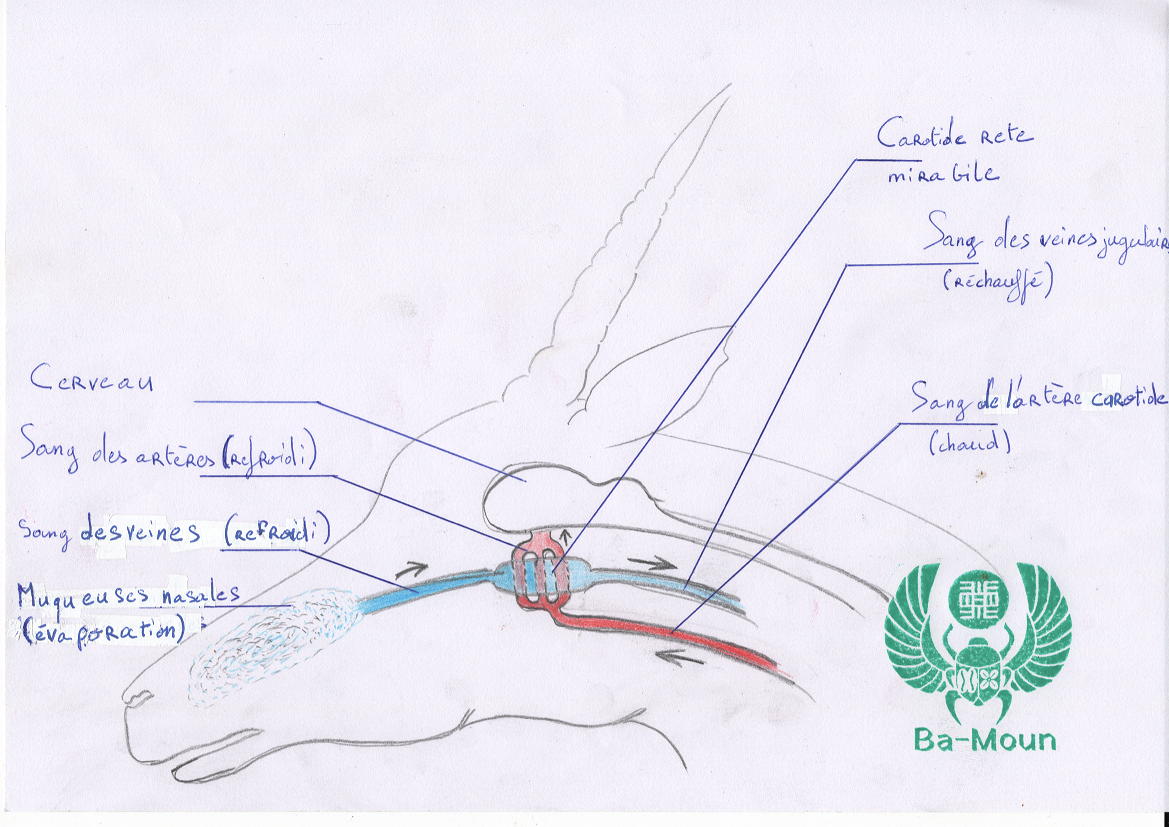 Carotide rete
mirabile
Sang des veines jugulair
(réchauffé)
Cerveau
Sang de l'artère carotide
(chaud)
Sang des artères (refroidi)
Sang des veines (refroidi)
Muqueuses nasales
(évaporation)
Ba-Moun